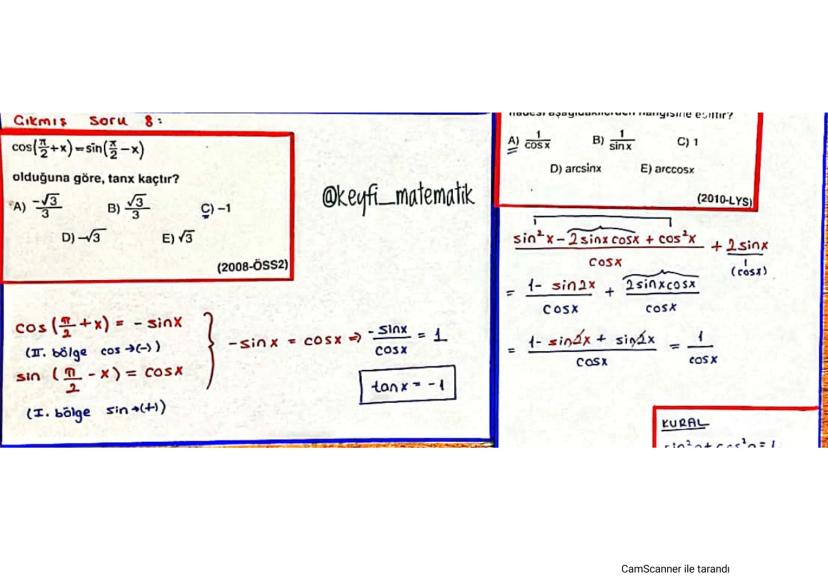 Çıkmış Soru 8:
cos(π/2+x)=sin(π/2−x)
olduğuna göre, tanx kaçtır?
A) −√3/3 B) √3/3 C) −1
D) −√3 E) √3
(2008-ÖSS2)
cos(π/2+x) = - sinx
(II. bölge cos→(-))
sin(π/2-x) = cosx
(I. bölge sin→(+))
-sinx = cosx ⇒ -sinx/cosx = 1
tanx = -1
@keyfi_matematik
ifadesi aşağıdakilerden hangisine eşittir?
A) 1/cosx B) 1/sinx C) 1
D) arcsinx E) arccosx
(2010-LYS)
(sin²x-2sinxcosx+cos²x)/cosx + 2sinx/1
(cosx)
= (1-sin2x)/cosx + 2sinxcosx/cosx
= (1-sin2x+sin2x)/cosx = 1/cosx
KURAL
CamScanner ile tarandı